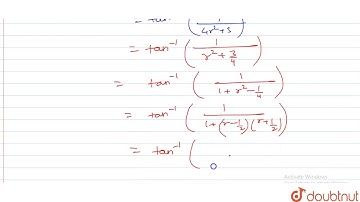 = tan⁻¹ (1/(4r²+3))
= tan⁻¹ (1/(r²+3/4))
= tan⁻¹ (1/(1+r²-1/4))
= tan⁻¹ (1/(1+(r-1/2)(r+1/2)))
= tan⁻¹ (
Activate Windows
doubtnut